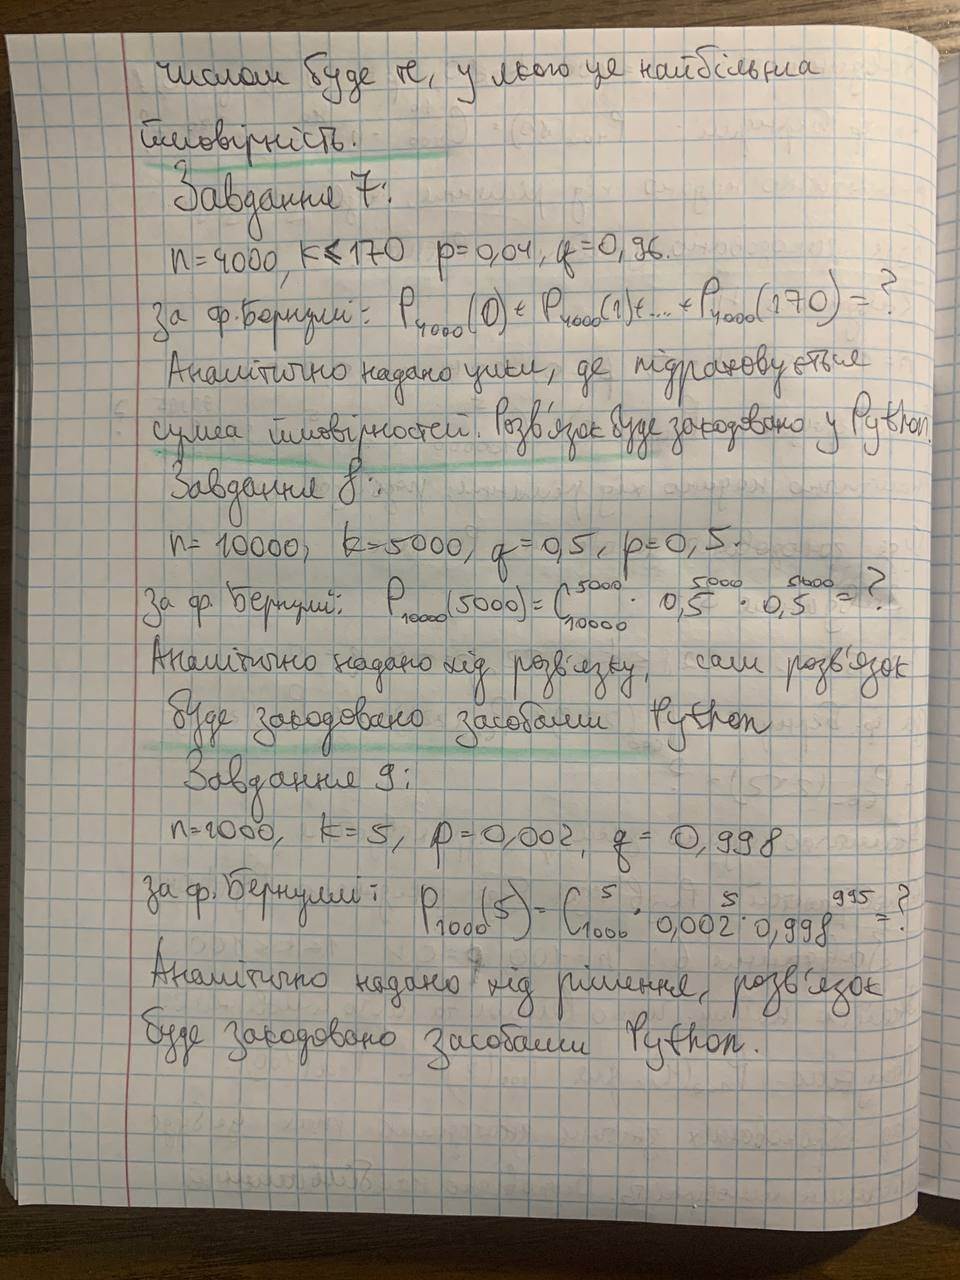 числом буде те, у якого ця найбільша
ймовірність.
Завдання 7:
n=4000, k⩽170 p=0,04, q=0,96.
за ф.Бернуллі: P₄₀₀₀(0)+P₄₀₀₀(1)+...+P₄₀₀₀(170)=?
Аналітично надано цикл, де підраховується
сума ймовірностей. Розв'язок буде закодовано у Python.
Завдання 8:
n=10000, k=5000, q=0,5, p=0,5.
за ф. Бернуллі: P₁₀₀₀₀(5000)=C₁₀₀₀₀⁵⁰⁰⁰ · 0,5⁵⁰⁰⁰ · 0,5⁵⁰⁰⁰=?
Аналітично надано хід розв'язку, сам розв'язок
буде закодовано засобами Python
Завдання 9:
n=1000, k=5, p=0,002, q=0,998
за ф.Бернуллі: P₁₀₀₀(5)=C₁₀₀₀⁵ · 0,002⁵ · 0,998⁹⁹⁵=?
Аналітично надано хід рішення, розв'язок
буде закодовано засобами Python.